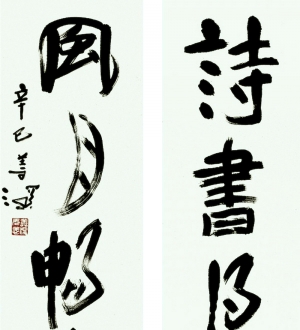 詩書
風月暢
辛巳善